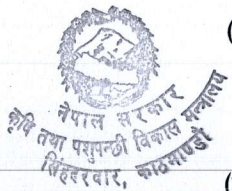 (
नेपाल सरकार
कृषि तथा पशुपन्छी विकास मन्त्रालय
सिंहदरबार, काठमाण्डौ
(